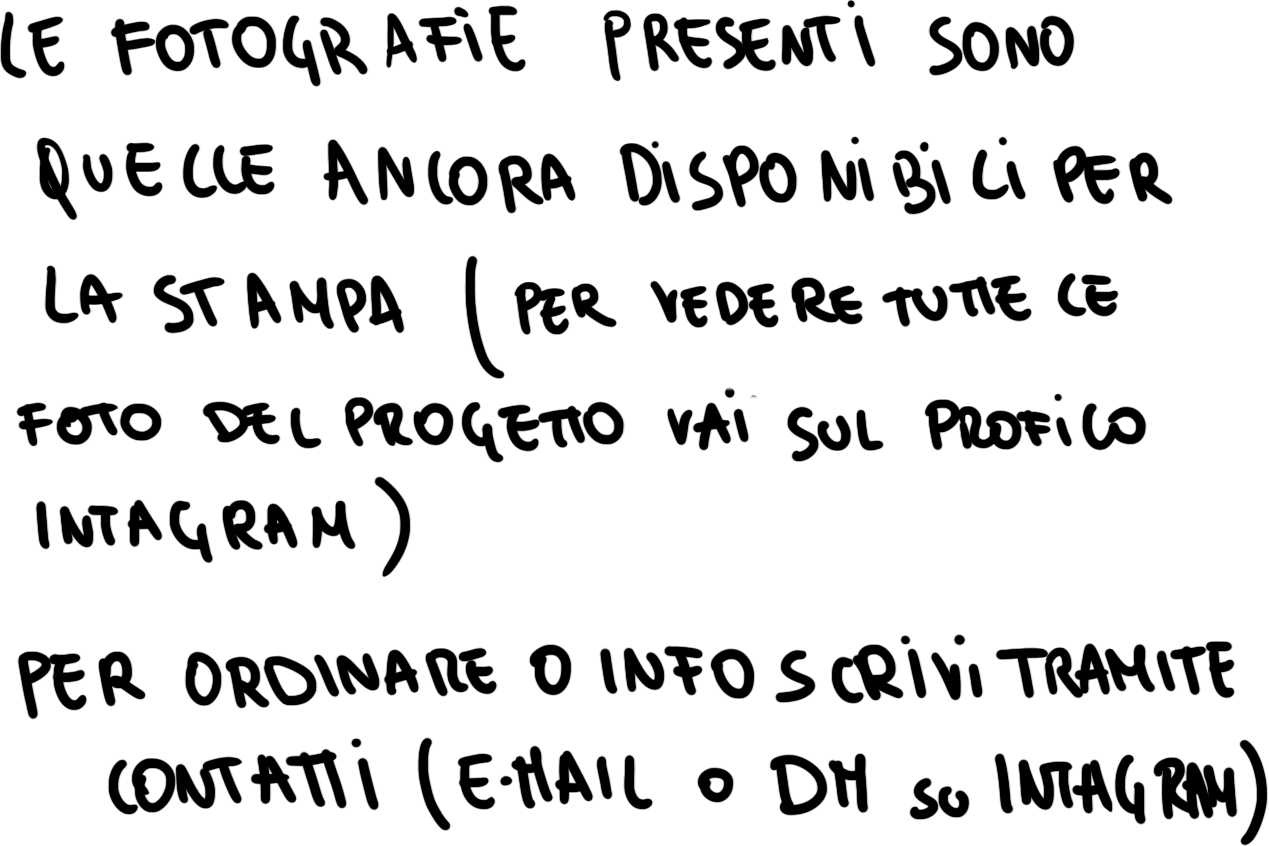 LE FOTOGRAFiE PRESENTi SONO
QUELLE ANCORA DiSPONiBiLi PER
LA STAMPA (PER VEDERE TUTTE LE
FOTO DEL PROGETTO VAi SUL PROFiLO
INTAGRAM)
PER ORDINARE O INFO SCRiVi TRAMITE
CONTATTi (E-MAIL O DM SU INTAGRAM)